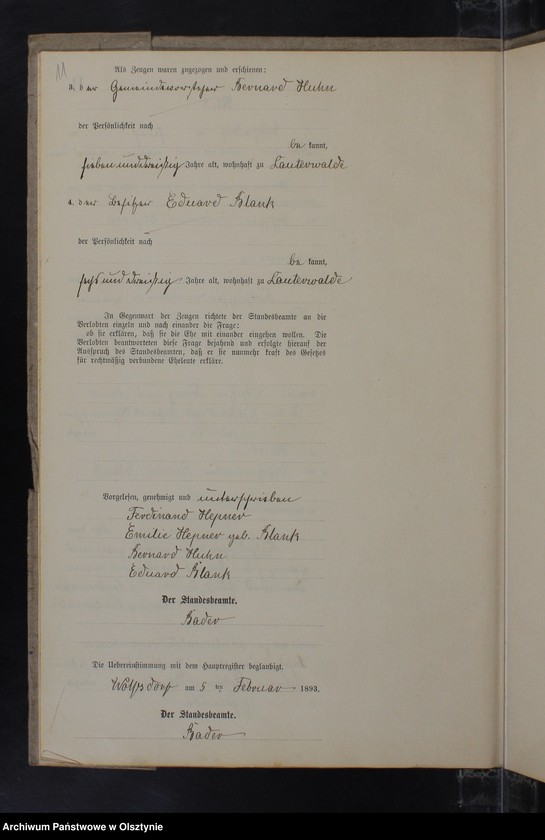 11
Als Zeugen waren zugezogen und erschienen:
3. der Gemeindevorsteher Bernard Huhn
der Persönlichkeit nach
be kannt,
siebenunddreißig Jahre alt, wohnhaft zu Lauterwalde
4. der Besitzer Eduard Blank
der Persönlichkeit nach
be kannt,
sechsunddreißig Jahre alt, wohnhaft zu Lauterwalde
In Gegenwart der Zeugen richtete der Standesbeamte an die
Verlobten einzeln und nach einander die Frage:
ob sie erklären, daß sie die Ehe mit einander eingehen wollen. Die
Verlobten beantworteten diese Frage bejahend und erfolgte hierauf der
Ausspruch des Standesbeamten, daß er sie nunmehr kraft des Gesetzes
für rechtmäßig verbundene Eheleute erkläre.
Vorgelesen, genehmigt und unterschrieben
Ferdinand Hepner
Emilie Hepner geb. Blank
Bernard Huhn
Eduard Blank
Der Standesbeamte.
Bader
Die Uebereinstimmung mit dem Hauptregister beglaubigt.
Wolfsdorf am 5 ten Februar 1893.
Der Standesbeamte.
Bader
Archiwum Państwowe w Olsztynie